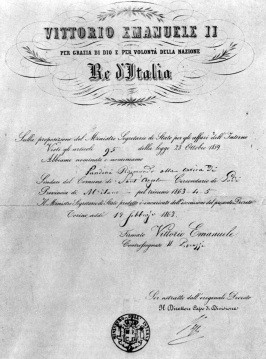 VITTORIO EMANUELE II
PER GRAZIA DI DIO E PER VOLONTÀ DELLA NAZIONE
Re d'Italia
Sulla proposizione del Ministro Segretario di Stato per gli affari dell'Interno
Visti gli articoli 95 della legge 23 Ottobre 1859
Abbiamo nominato e nominiamo
alla carica di
Sindaco del Comune di Sant' Angelo Circondario di Lodi
Provincia di Milano pel triennio 1863-4-5
Il Ministro Segretario di Stato predetto è incaricato dell'esecuzione del presente Decreto
Torino addì 19 febbrajo 1863.
Firmato Vittorio Emanuele
Controsegnato U. Peruzzi
Per estratto dall'originale Decreto
Il Direttore Capo di Divisione